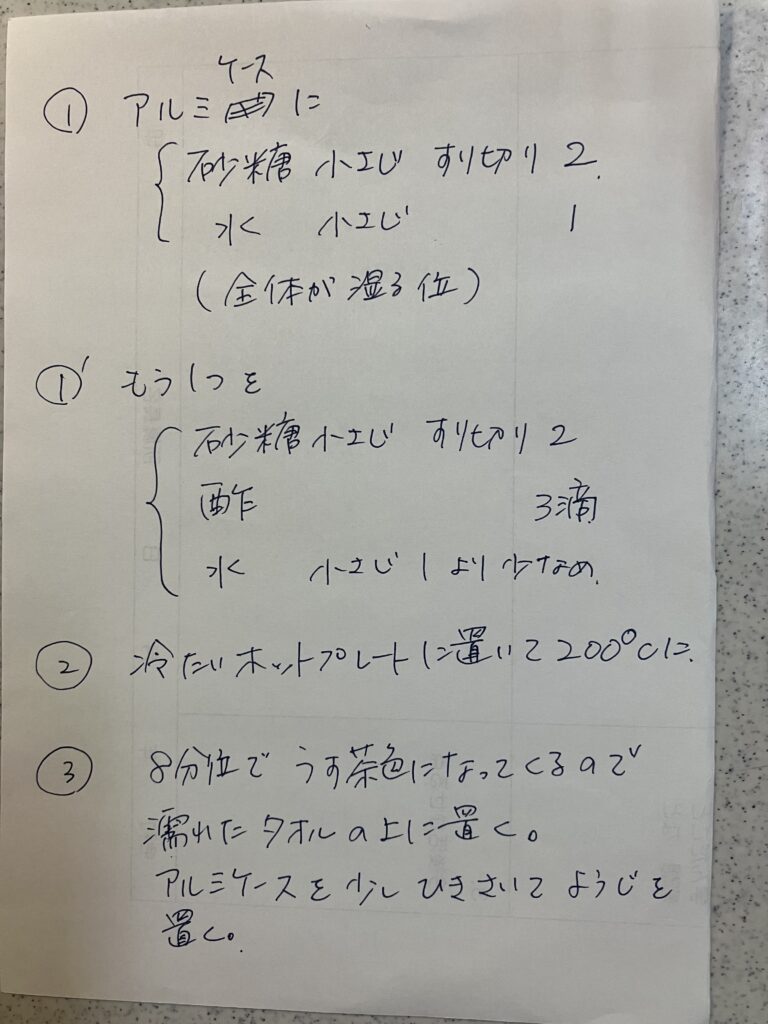 ① アルミケースに
砂糖 小さじ すり切り 2.
水 小さじ 1
(全体が湿る位)
①' もう1つを
砂糖 小さじ すり切り 2
酢 3滴
水 小さじ1より少なめ.
② 冷たいホットプレートに置いて200°Cに.
③ 8分位でうす茶色になってくるので
濡れたタオルの上に置く。
アルミケースを少しひきさいてようじを
置く。